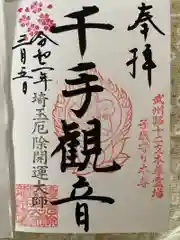 奉拝
武州路十二支本尊霊場
子歳守り本尊
千手観音
令和二年
三月五日
埼玉厄除開運大師